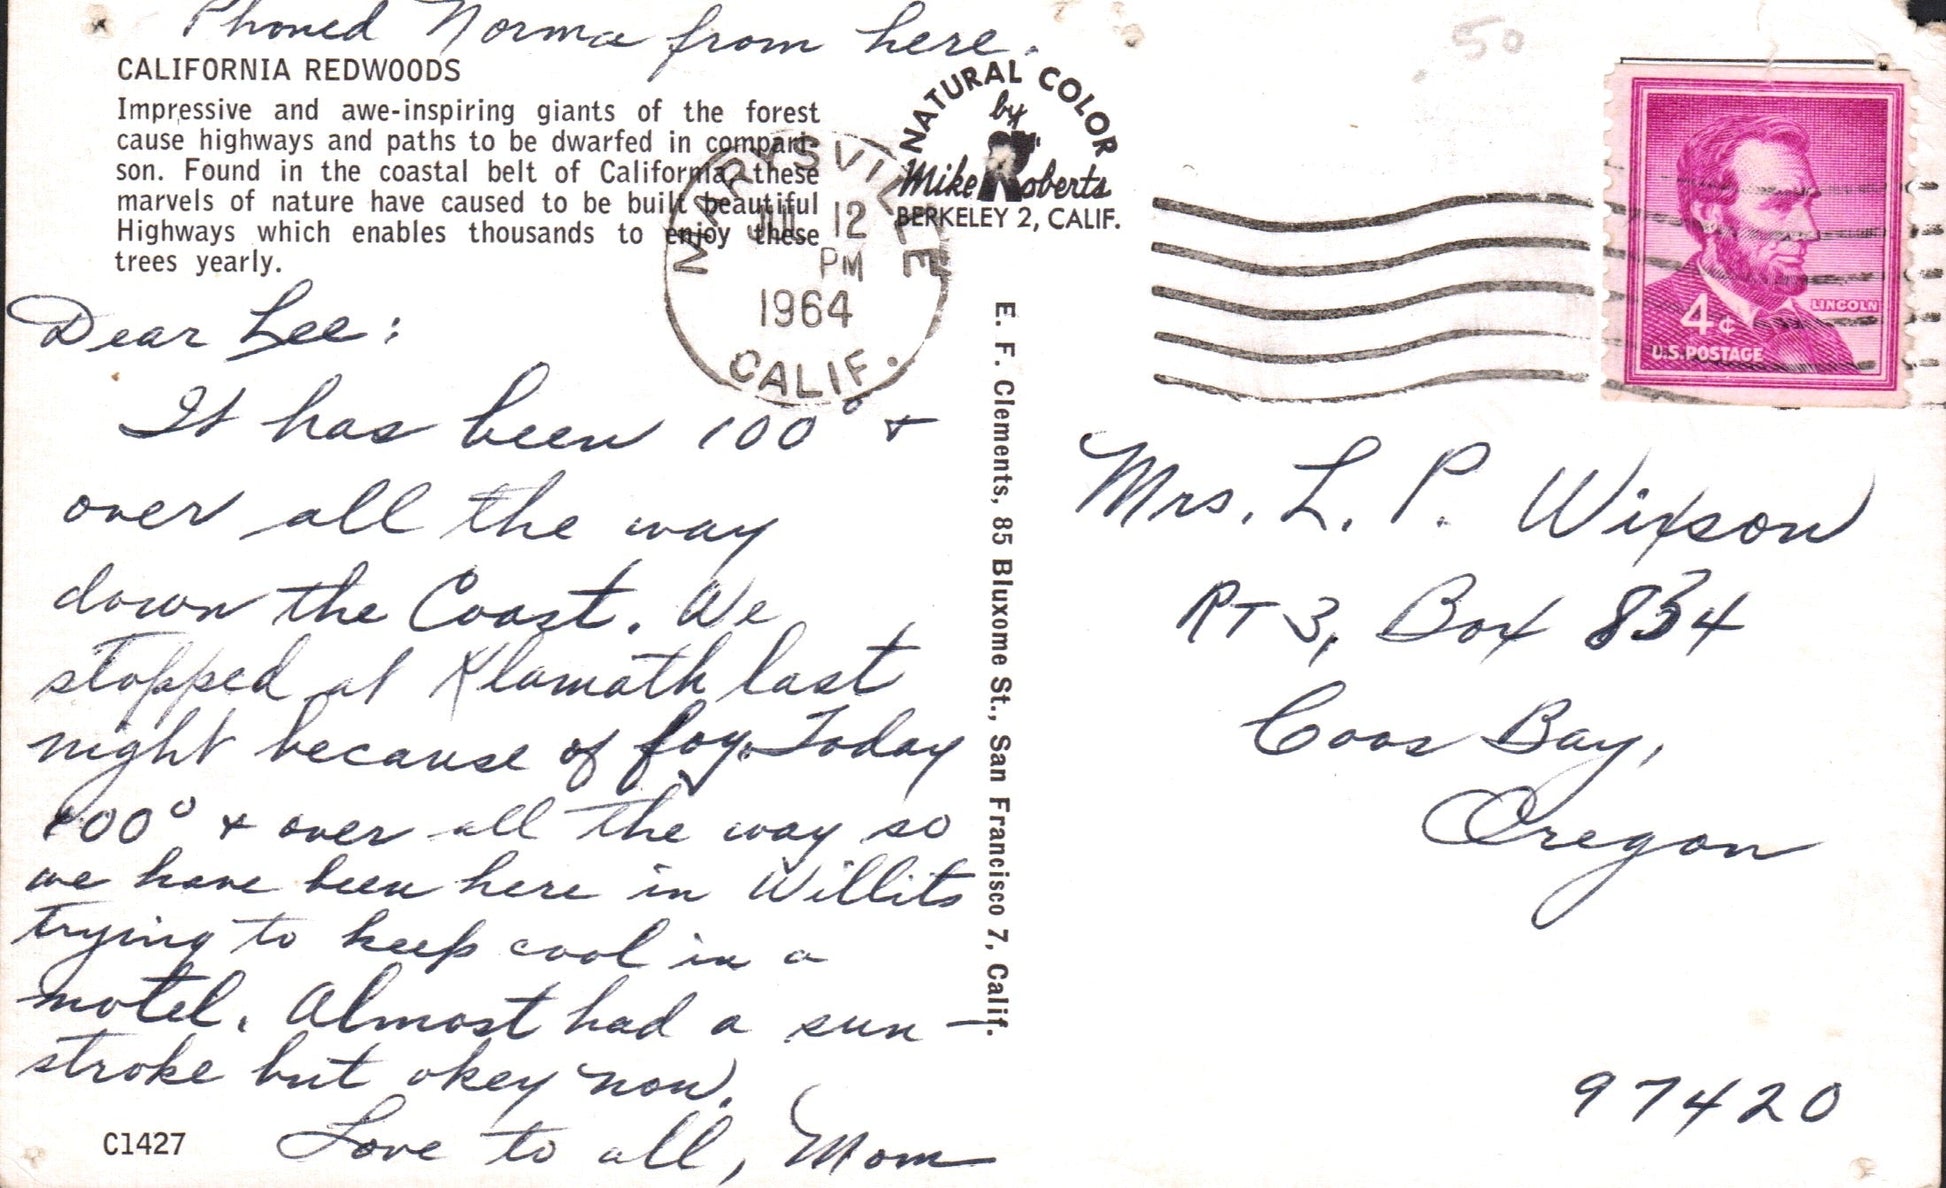 Phoned Norma from here.
CALIFORNIA REDWOODS
Impressive and awe-inspiring giants of the forest
cause highways and paths to be dwarfed in compari-
son. Found in the coastal belt of California, these
marvels of nature have caused to be built beautiful
Highways which enables thousands to enjoy these
trees yearly.
Dear Lee:
It has been 100° +
over all the way
down the Coast. We
stopped at Klamath last
night because of fog. Today
100° + over all the way so
we have been here in Willits
trying to keep cool in a
motel. Almost had a sun-
stroke but okey now.
Love to all, Mom
C1427
MARYSVILLE
JUL 12
PM
1964
CALIF.
NATURAL COLOR
by
Mike Roberts
BERKELEY 2, CALIF.
E. F. Clements, 85 Bluxome St., San Francisco 7, Calif.
.50
4¢
LINCOLN
U.S. POSTAGE
Mrs. L. P. Wixson
RT 3, Box 834
Coos Bay,
Oregon
97420